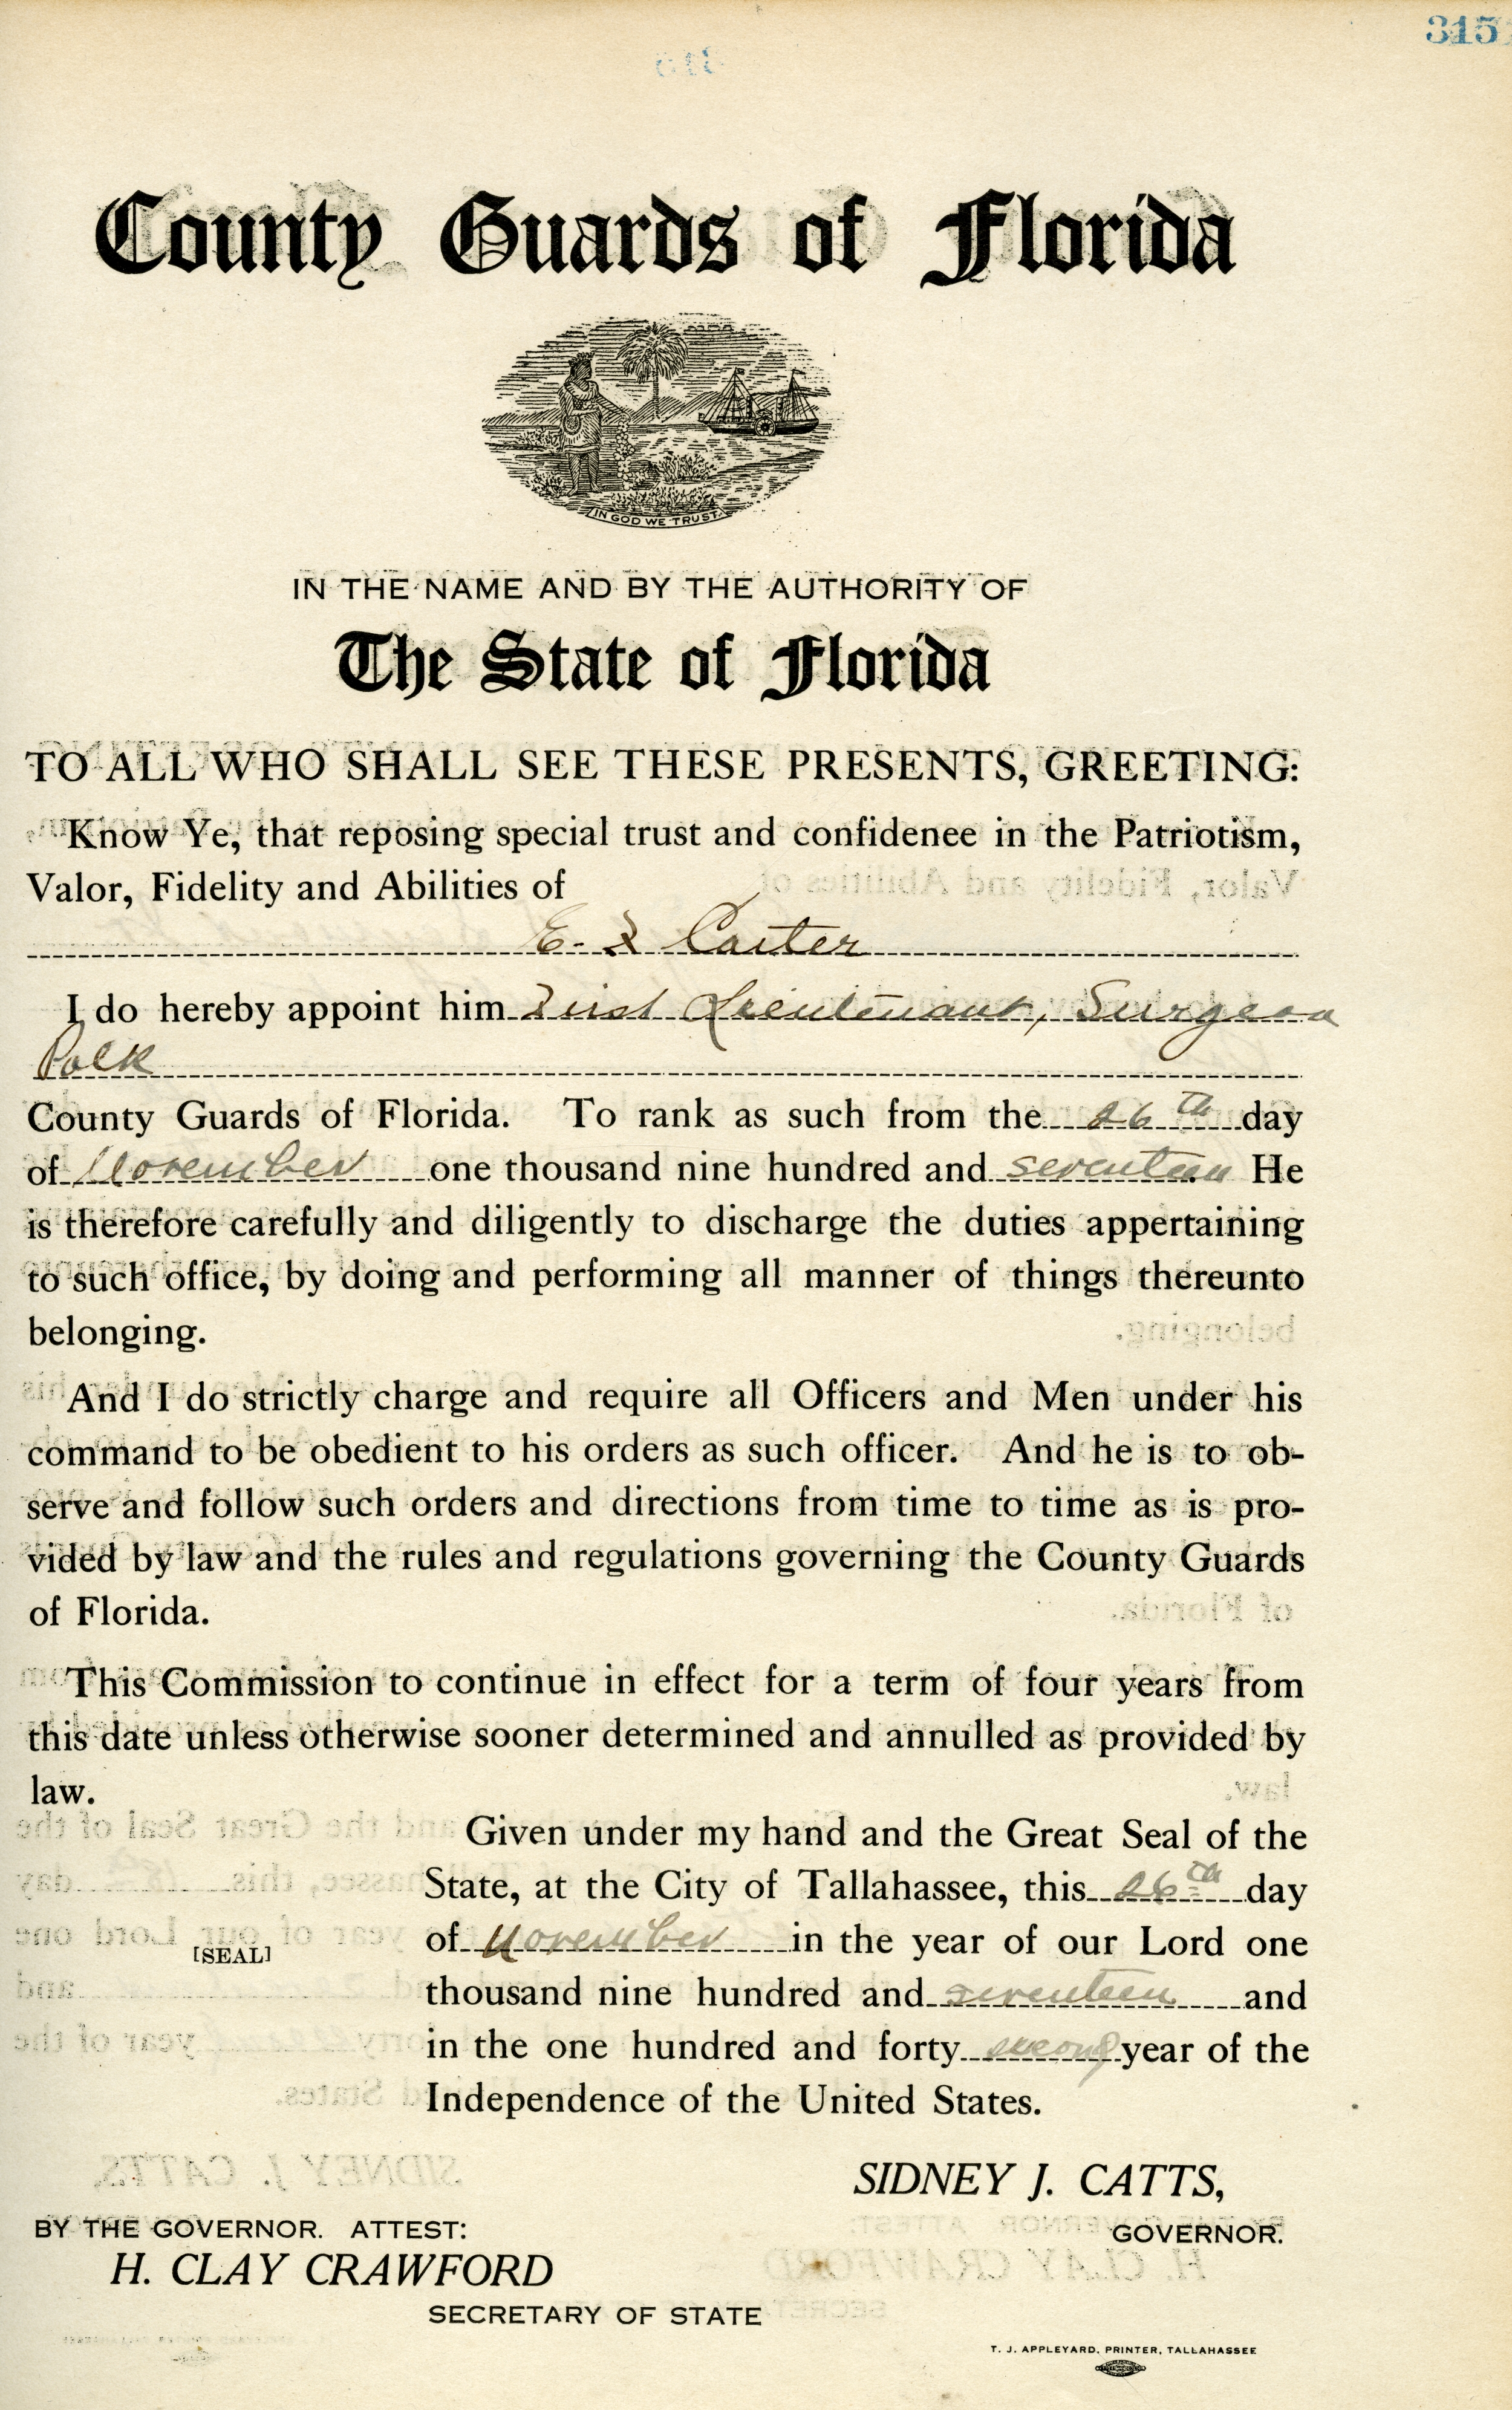 315
County Guards of Florida
IN GOD WE TRUST
IN THE NAME AND BY THE AUTHORITY OF
The State of Florida
TO ALL WHO SHALL SEE THESE PRESENTS, GREETING:
Know Ye, that reposing special trust and confidenee in the Patriotism,
Valor, Fidelity and Abilities of
E. Carter
I do hereby appoint him First Lieutenant, Surgeon
Polk
County Guards of Florida. To rank as such from the 26th day
of November one thousand nine hundred and seventeen He
is therefore carefully and diligently to discharge the duties appertaining
to such office, by doing and performing all manner of things thereunto
belonging.
And I do strictly charge and require all Officers and Men under his
command to be obedient to his orders as such officer. And he is to ob-
serve and follow such orders and directions from time to time as is pro-
vided by law and the rules and regulations governing the County Guards
of Florida.
This Commission to continue in effect for a term of four years from
this date unless otherwise sooner determined and annulled as provided by
law.
Given under my hand and the Great Seal of the
State, at the City of Tallahassee, this 26th day
of November in the year of our Lord one
[SEAL]
thousand nine hundred and seventeen and
in the one hundred and forty second year of the
Independence of the United States.
SIDNEY J. CATTS,
GOVERNOR.
BY THE GOVERNOR. ATTEST:
H. CLAY CRAWFORD
SECRETARY OF STATE
T. J. APPLEYARD, PRINTER, TALLAHASSEE